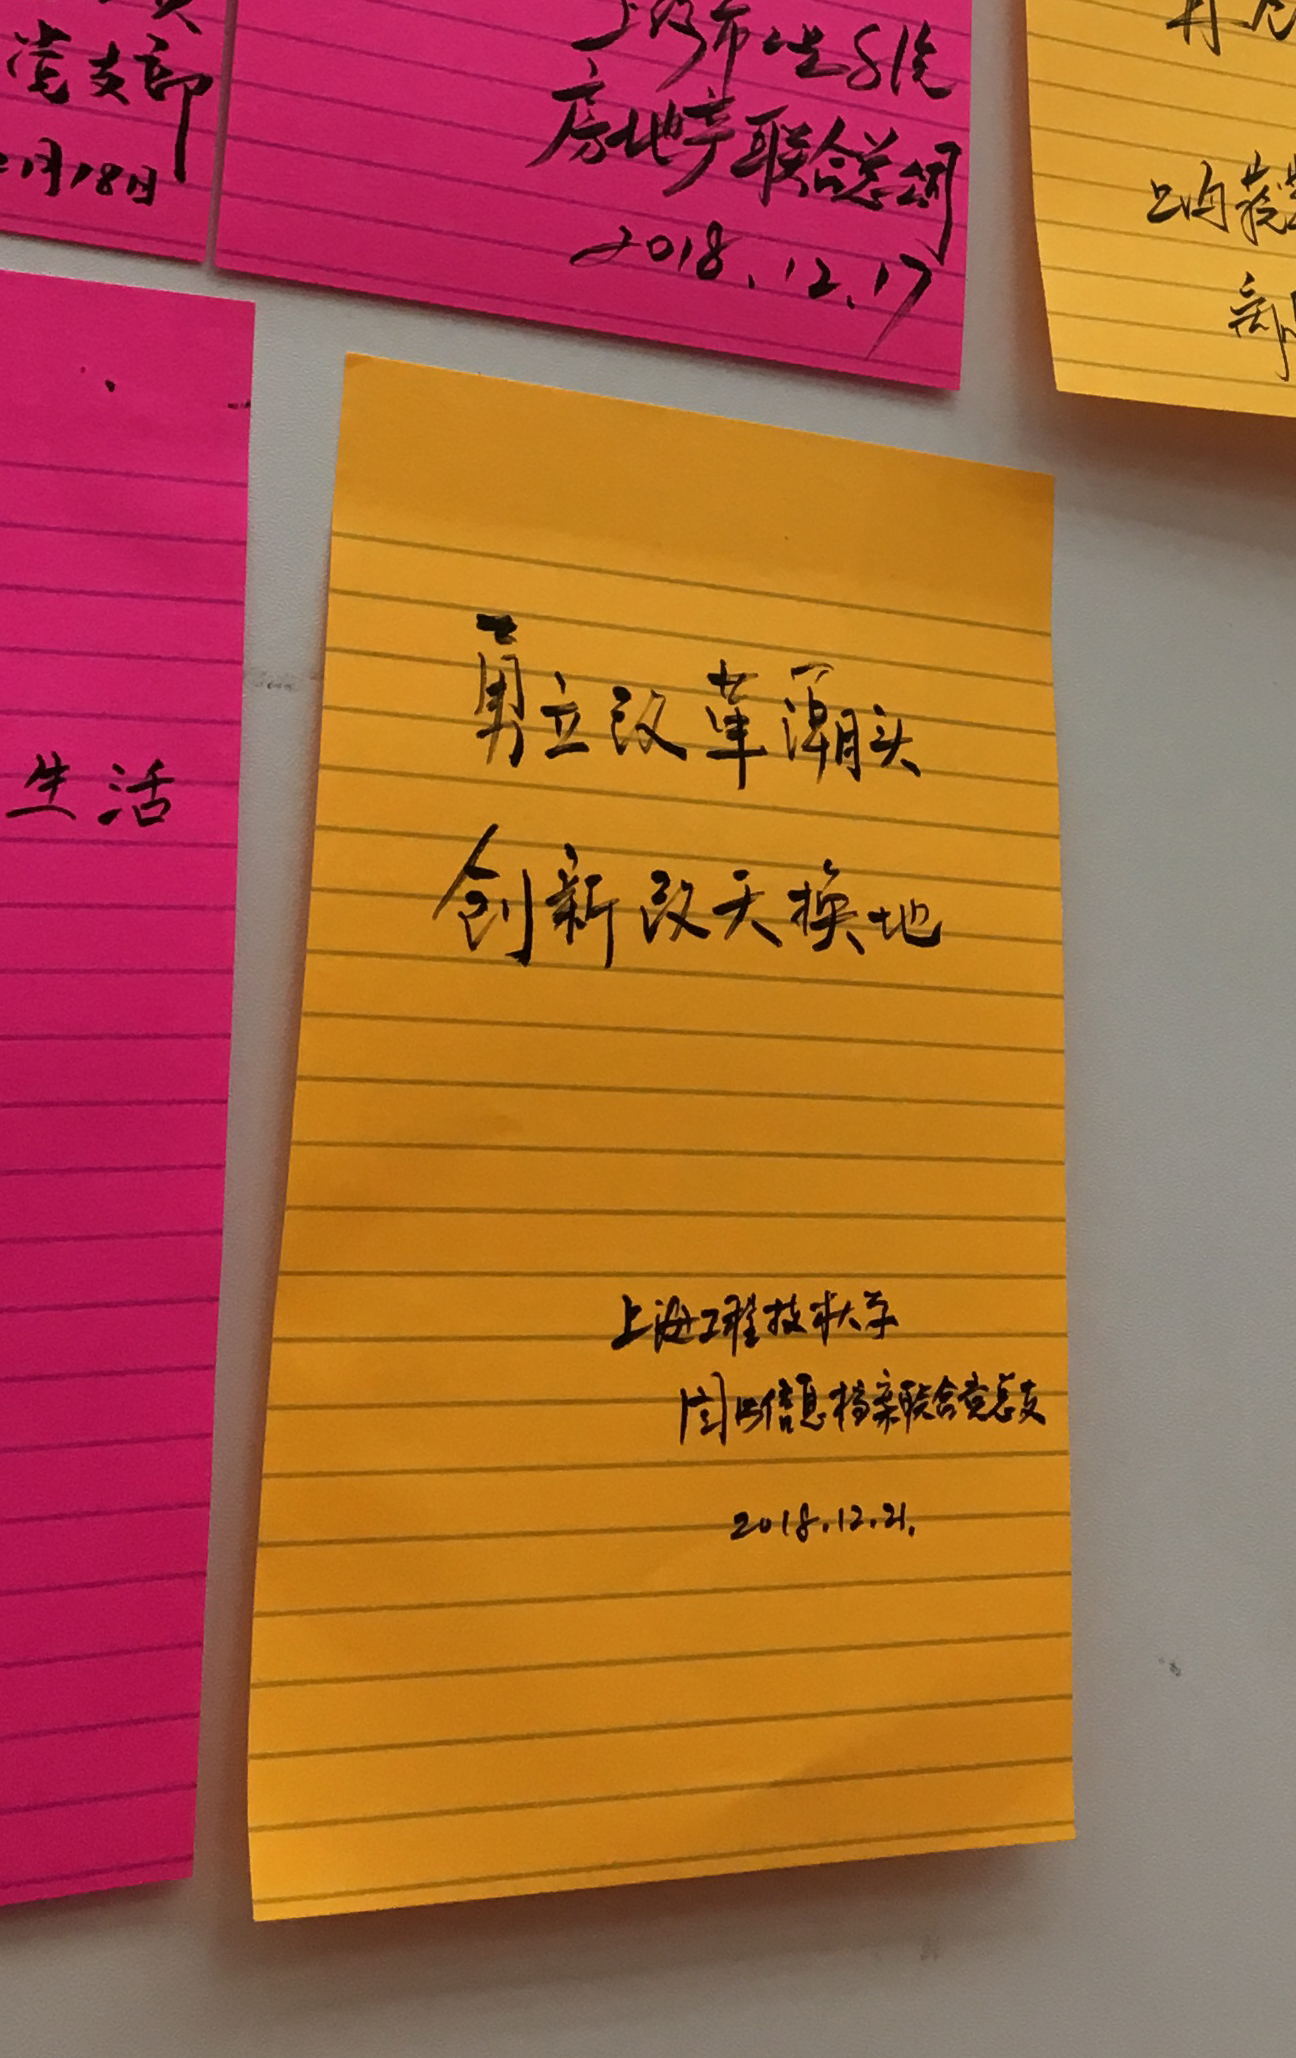 党支部
月18日
房地产联合总公司
2018.12.17
生活
勇立改革潮头
创新改天换地
上海工程技术大学
图文信息档案联合党总支
2018.12.21.